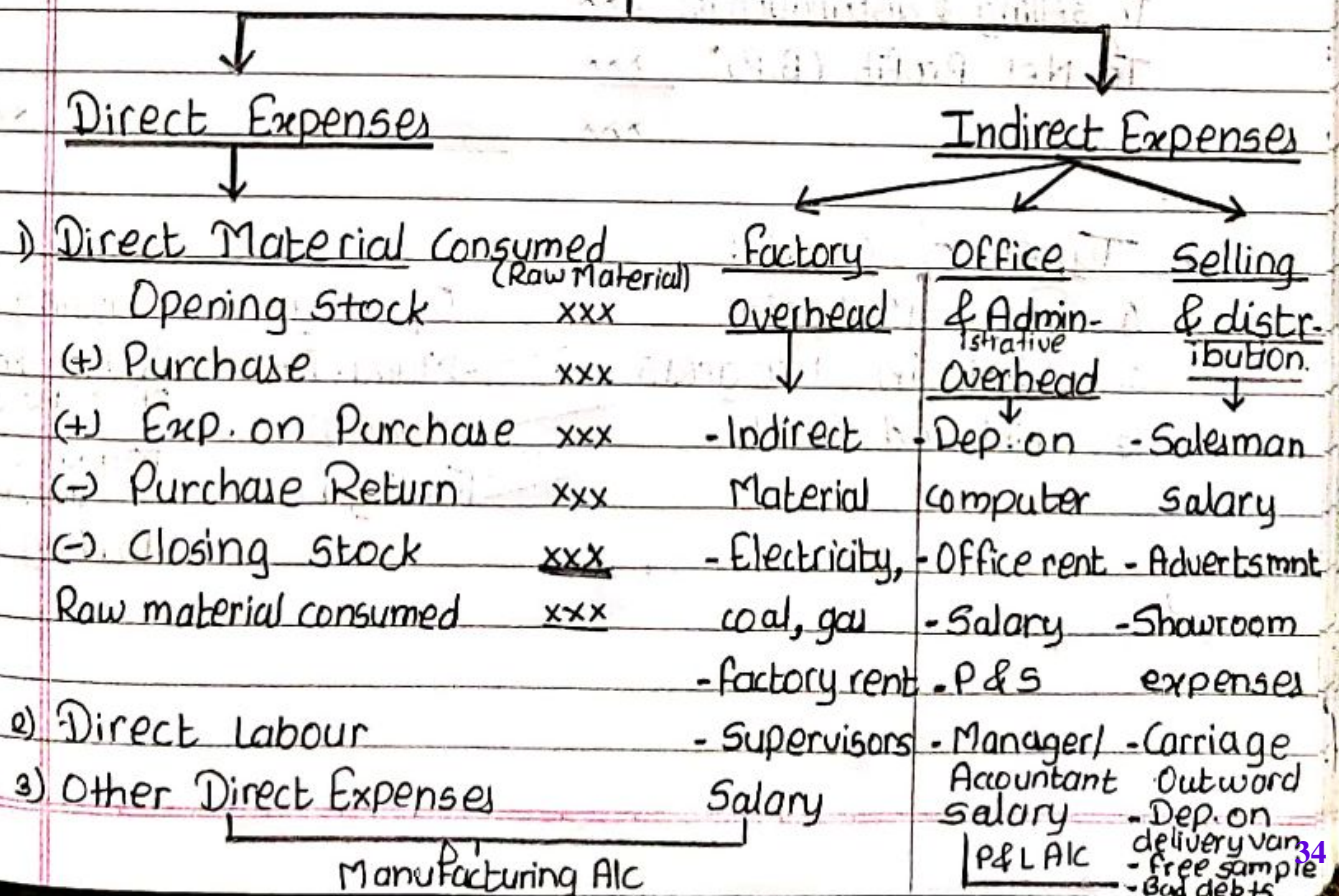 Direct Expenses
Indirect Expenses
1) Direct Material Consumed
(Raw Material)
Opening Stock xxx
(+) Purchase xxx
(+) Exp. on Purchase xxx
(-) Purchase Return xxx
(-) Closing Stock xxx
Raw material consumed xxx
2) Direct Labour
3) Other Direct Expenses
Factory
Overhead
- Indirect
Material
- Electricity,
coal, gas
- Factory rent
- Supervisors
Salary
Manufacturing A/c
Office
& Admin-
istrative
Overhead
- Dep. on
computer
- Office rent
- Salary
- P & S
- Manager/
Accountant
salary
P&L A/c
Selling
& distr-
ibution.
- Salesman
salary
- Advertsmnt
- Showroom
expenses
- Carriage
Outword
- Dep. on
delivery van
- free sample
- Bad debts
34